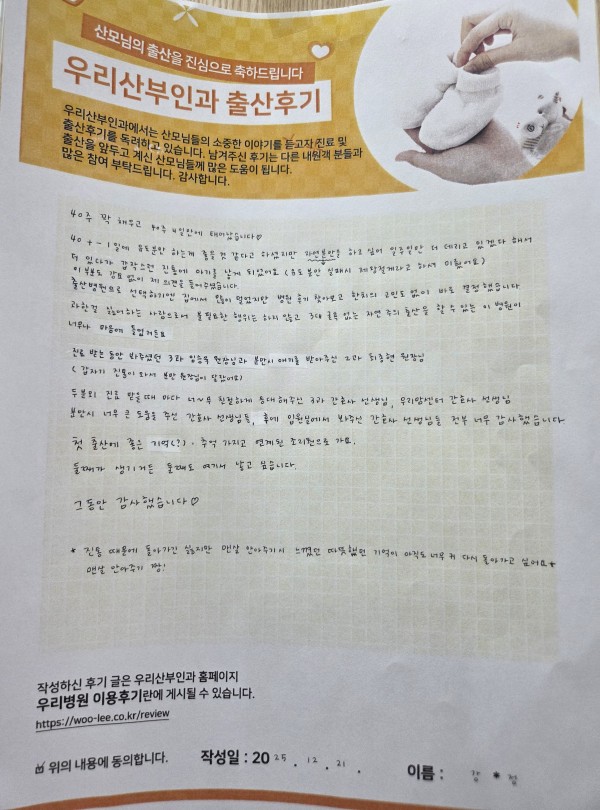 산모님의 출산을 진심으로 축하드립니다
우리산부인과 출산후기
우리산부인과에서는 산모님들의 소중한 이야기를 듣고자 진료 및
출산후기를 독려하고 있습니다. 남겨주신 후기는 다른 내원객 분들과
출산을 앞두고 계신 산모님들께 많은 도움이 됩니다.
많은 참여 부탁드립니다. 감사합니다.
40주 꽉 채우고 40주 4일만에 태어났습니다♡
40+-1일에 유도분만 하는게 좋을것 같다고 하셨지만 자연분만을 하고싶어 일주일만 더 데리고 있겠다 해서
더 있다가 갑작스런 진통에 아기를 낳게 되었어요 (유도분만 실패시 제왕절개라고 하셔서 미뤘어요)
이 부분도 강요 없이 제 의견을 들어주셨습니다
출산병원으로 선택하기엔 집에서 많이 멀었지만 병원 후기 찾아보고 한치의 고민도 없이 바로 결정했습니다
과한걸 싫어하는 사람으로서 불필요한 행위는 하지 않고 3대 굴욕 없는 자연주의 출산을 할 수 있는 이 병원이
너무나 마음에 들었거든요
진료 받는 동안 봐주셨던 3과 임승욱 원장님과 분만시 애기를 받아주신 2과 최종현 원장님
(갑자기 진통이 와서 분만 원장님이 달랐어요)
두분의 진료 받을때 마다 너~무 친절하게 응대해주신 3과 간호사 선생님, 우리맘센터 간호사 선생님
분만시 너무 큰 도움을 주신 간호사 선생님들, 후에 입원실에서 봐주신 간호사 선생님들 전부 너무 감사했습니다
첫 출산에 좋은 기억(?)·추억 가지고 연계된 조리원으로 가요.
둘째가 생기거든 둘째도 여기서 낳고 싶습니다.
그동안 감사했습니다♡
* 진통 때문에 돌아가긴 싫지만 맨살 안아주기시 느꼈던 따뜻했던 기억이 아직도 너무 커 다시 돌아가고 싶어요*
맨살 안아주기 짱!
작성하신 후기 글은 우리산부인과 홈페이지
우리병원 이용후기란에 게시될 수 있습니다.
https://woo-lee.co.kr/review
위의 내용에 동의합니다. 작성일 : 2025. 12. 21. 이름 : 강*